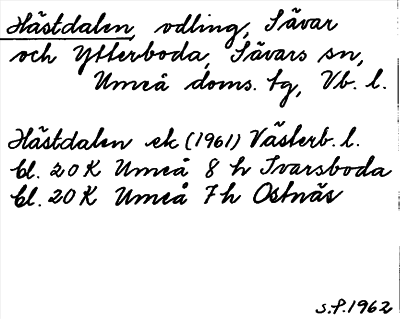 Hästdalen, odling, Sävar
och Ytterboda, Sävars sn,
Umeå doms. tg, Vb. l.
Hästdalen ek (1961) Västerb. l.
bl. 20 K Umeå 8 h Ivarsboda
bl. 20 K Umeå 7 h Ostnäs
S.P. 1962